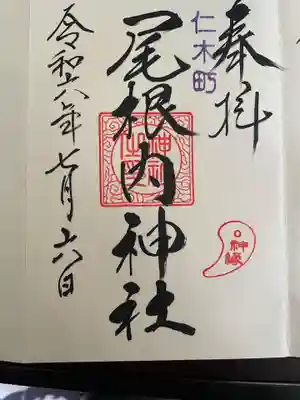 奉拝
仁木町
尾根内神社
令和六年七月六日